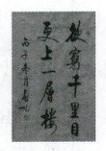 欲穷千里目
更上一层楼
丙子年月